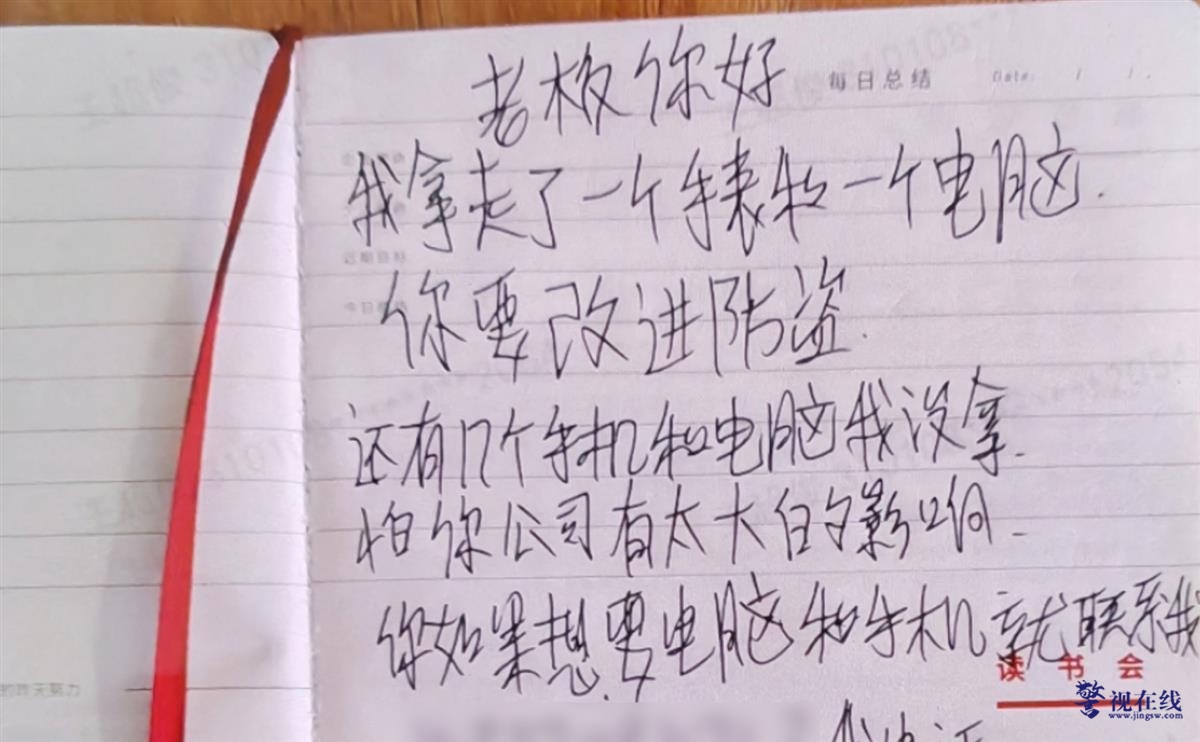 老板你好
每日总结 Date: / /
我拿走了一个手表和一个电脑.
近期目标
你要改进防盗.
还有几个手机和电脑我没拿.
怕你公司有太大的影响.
你如果想要电脑和手机就联系我
读书会
的昨天努力
警视在线
www.jingsw.com